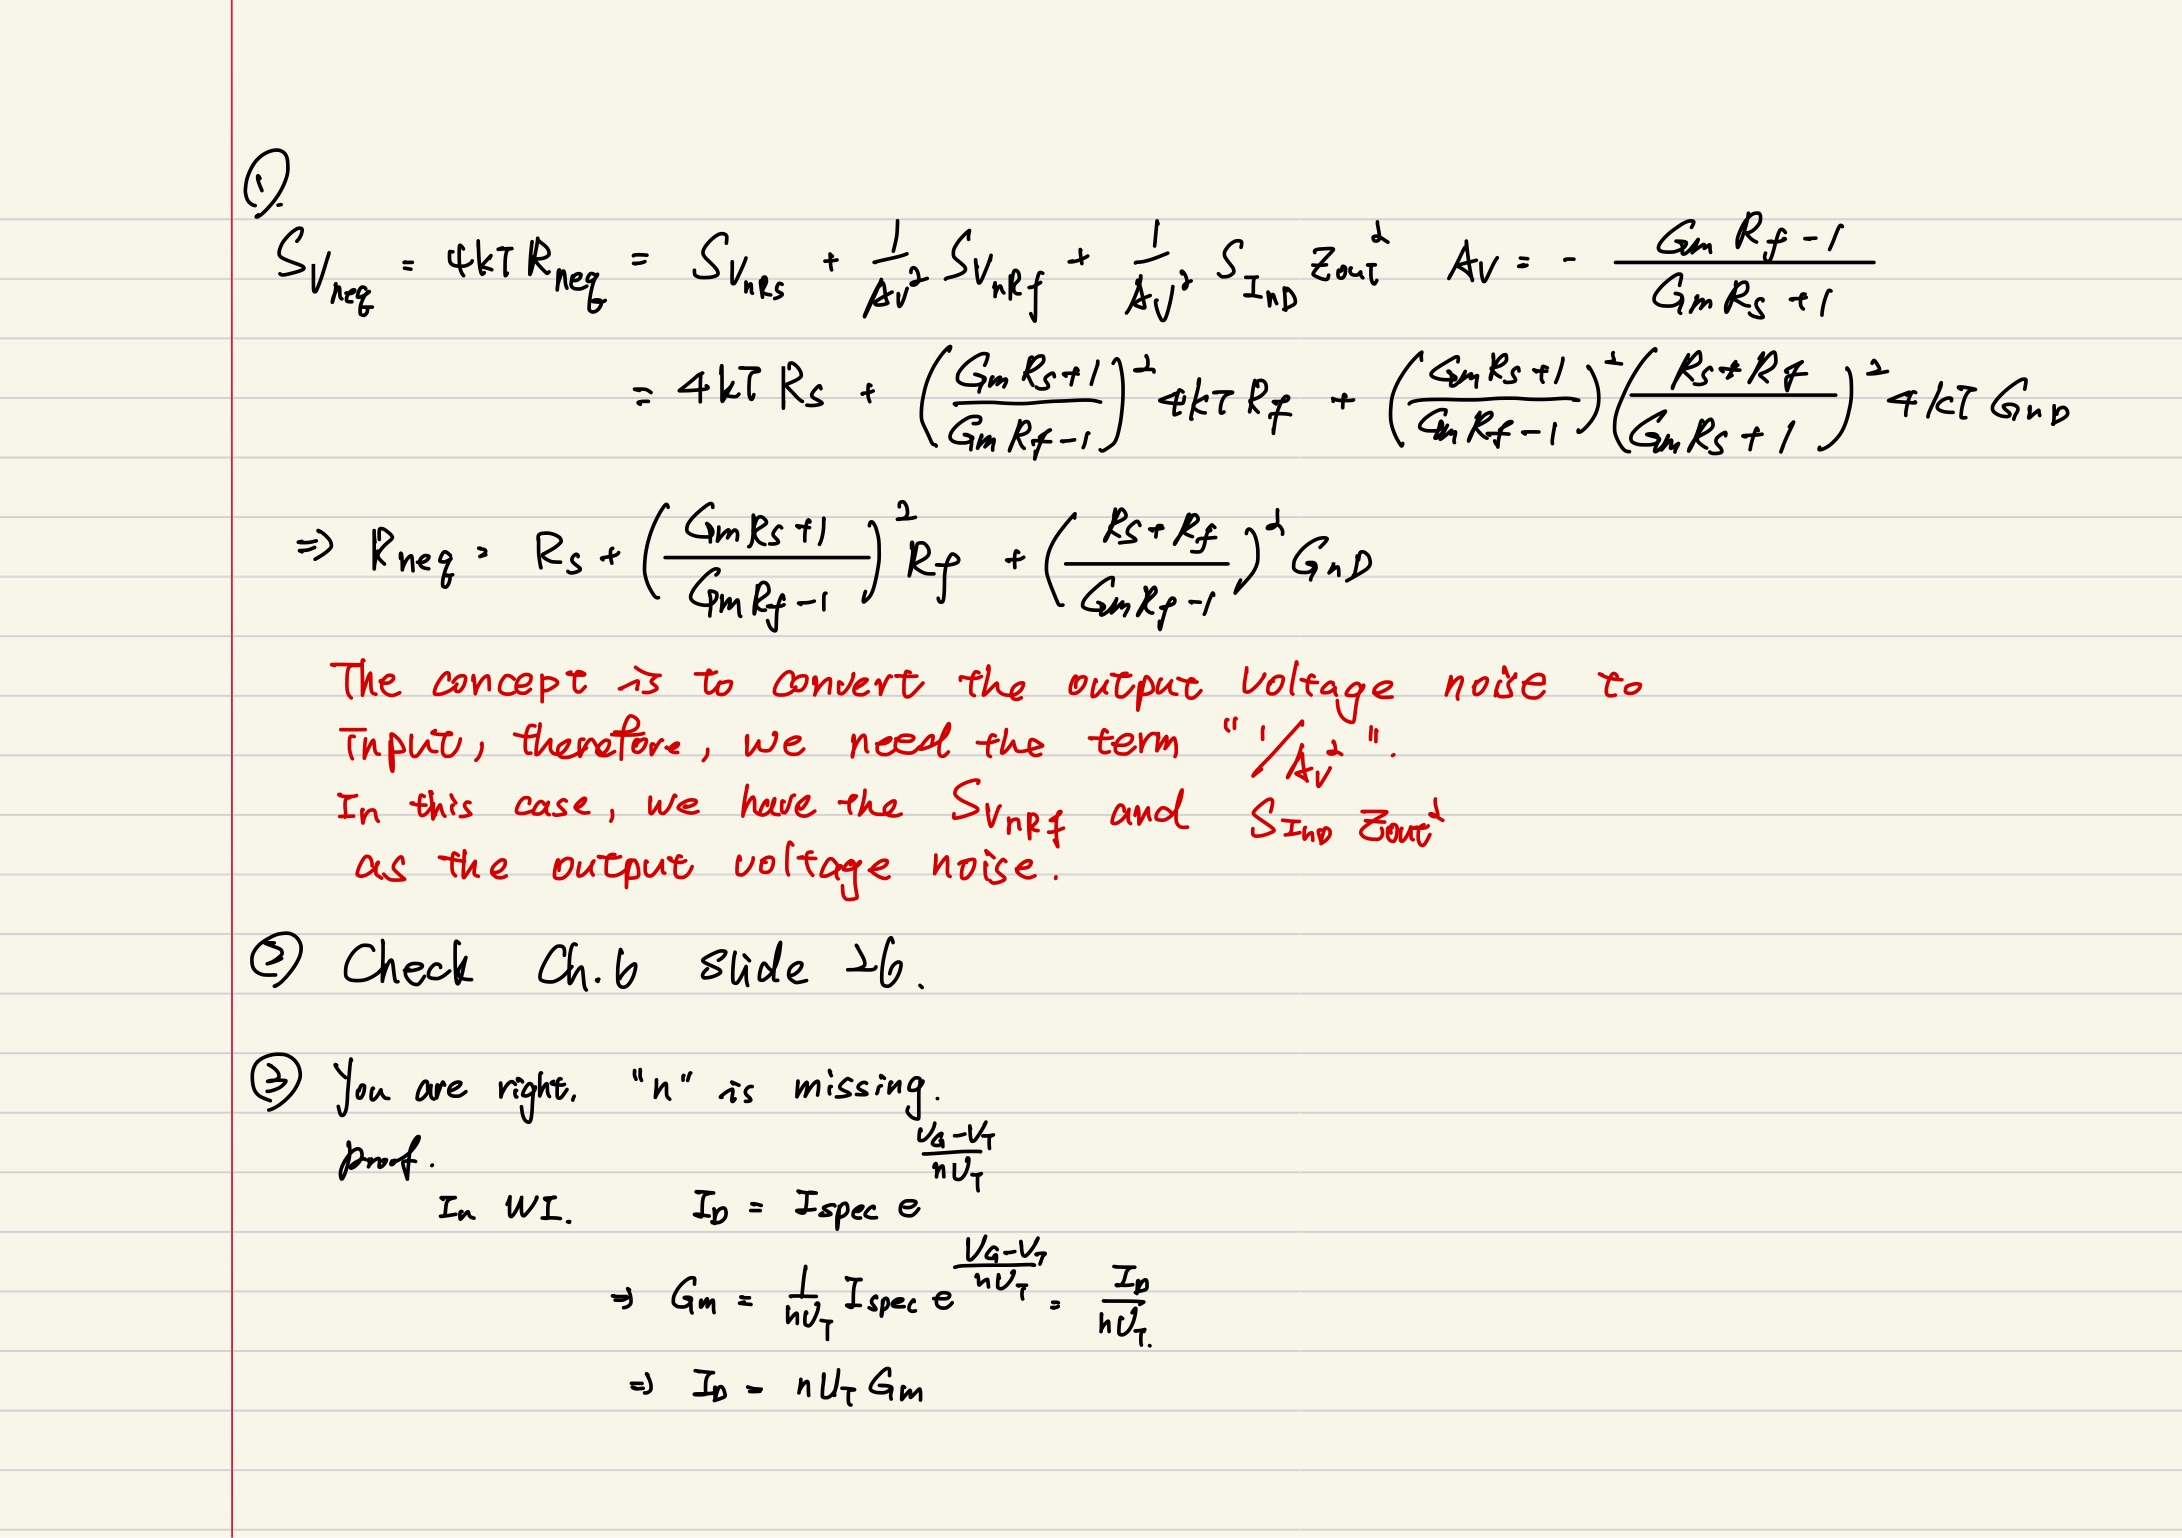 ①.
S_{V_{neq}} = 4kT R_{neq} = S_{V_{nRs}} + \frac{1}{A_V^2} S_{V_{nRf}} + \frac{1}{A_V^2} S_{I_{nD}} Z_{out}^2   A_V = - \frac{G_m R_f - 1}{G_m R_s + 1}
= 4kT R_s + \left(\frac{G_m R_s + 1}{G_m R_f - 1}\right)^2 4kT R_f + \left(\frac{G_m R_s + 1}{G_m R_f - 1}\right)^2 \left(\frac{R_s + R_f}{G_m R_s + 1}\right)^2 4kT G_{nD}
⇒ R_{neq} = R_s + \left(\frac{G_m R_s + 1}{G_m R_f - 1}\right)^2 R_f + \left(\frac{R_s + R_f}{G_m R_f - 1}\right)^2 G_{nD}
The concept is to convert the output voltage noise to
Input, therefore, we need the term "1/A_V^2".
In this case, we have the S_{V_{nRf}} and S_{I_{nD}} Z_{out}^2
as the output voltage noise.
② Check Ch.6 slide 26.
③ You are right. "n" is missing.
proof.
In WI. I_D = I_{spec} e^{\frac{V_G - V_T}{nU_T}}
⇒ G_m = \frac{1}{nU_T} I_{spec} e^{\frac{V_G - V_T}{nU_T}} = \frac{I_D}{nU_T}.
⇒ I_D = nU_T G_m